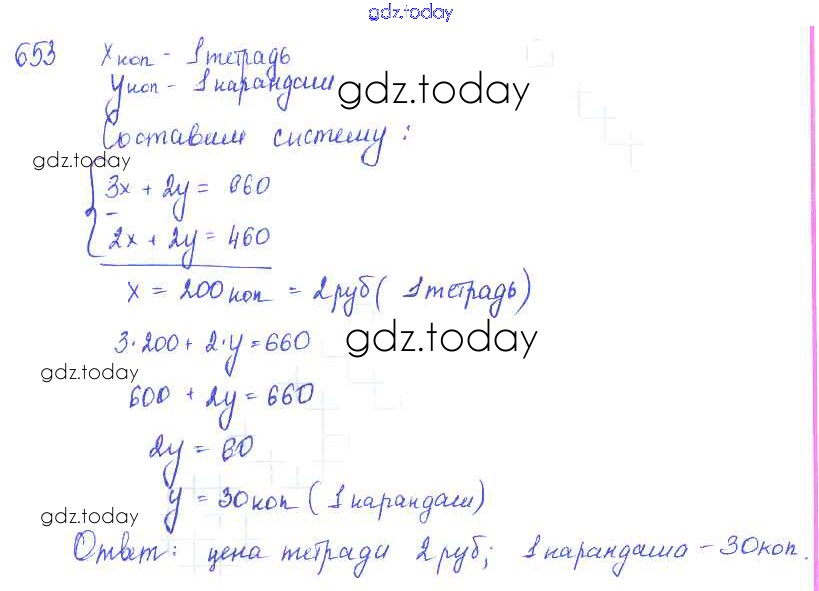 gdz.today
653 x коп - 1 тетрадь
y коп - 1 карандаш
gdz.today
Составим систему:
gdz.today
3x + 2y = 660
-
2x + 2y = 460
x = 200 коп = 2 руб ( 1 тетрадь)
3·200 + 2·y = 660
gdz.today
gdz.today
600 + 2y = 660
2y = 60
y = 30 коп ( 1 карандаш)
gdz.today
Ответ: цена тетради 2 руб; 1 карандаша - 30 коп.